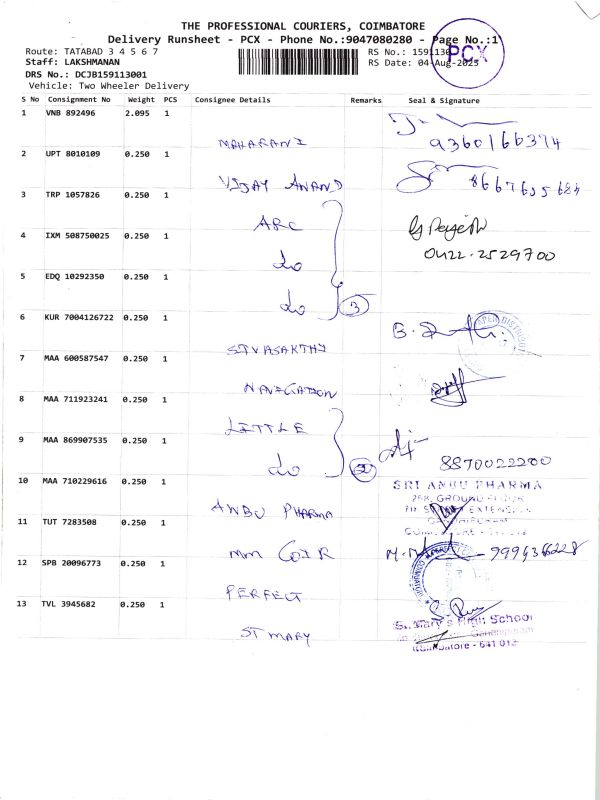 THE PROFESSIONAL COURIERS, COIMBATORE
Delivery Runsheet - PCX - Phone No.:9047080280 - Page No.:1
Route: TATABAD 3 4 5 6 7
RS No.: 159113001
Staff: LAKSHMANAN
RS Date: 04-Aug-2025
PCX
DRS No.: DCJB159113001
Vehicle: Two Wheeler Delivery
S No Consignment No Weight PCS Consignee Details Remarks Seal & Signature
1 VNB 892496 2.095 1
MAHARANI 9360166374
2 UPT 8010109 0.250 1
VIJAY ANAND
3 TRP 1057826 0.250 1
ARC
4 IXM 508750025 0.250 1
do 0422-2529700
5 EDQ 10292350 0.250 1
do 3
6 KUR 7004126722 0.250 1
SIVASAKTHI
7 MAA 600587547 0.250 1
NAVIGATION
8 MAA 711923241 0.250 1
LITTLE
9 MAA 869907535 0.250 1
do 2 8870022200
10 MAA 710229616 0.250 1
SRI ANBU PHARMA
268, GROUND FLOOR
ANBU PHARMA
EXTENSION
11 TUT 7283508 0.250 1
MM COIR
12 SPB 20096773 0.250 1
PERFECT
13 TVL 3945682 0.250 1
St. Mary's High School
ST MARY
Coimbatore - 641 012